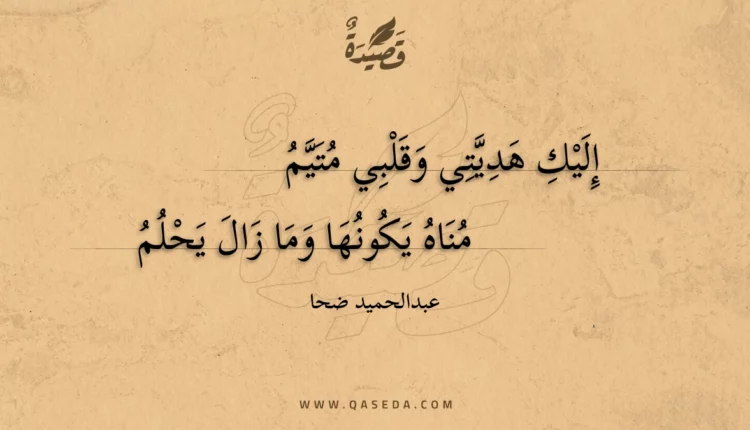 قَصِيدَةٌ
إِلَيْكِ هَدِيَّتِي وَقَلْبِي مُتَيَّمُ
مُنَاهُ يَكُونُهَا وَمَا زَالَ يَحْلُمُ
عبدالحميد ضحا
WWW.QASEDA.COM